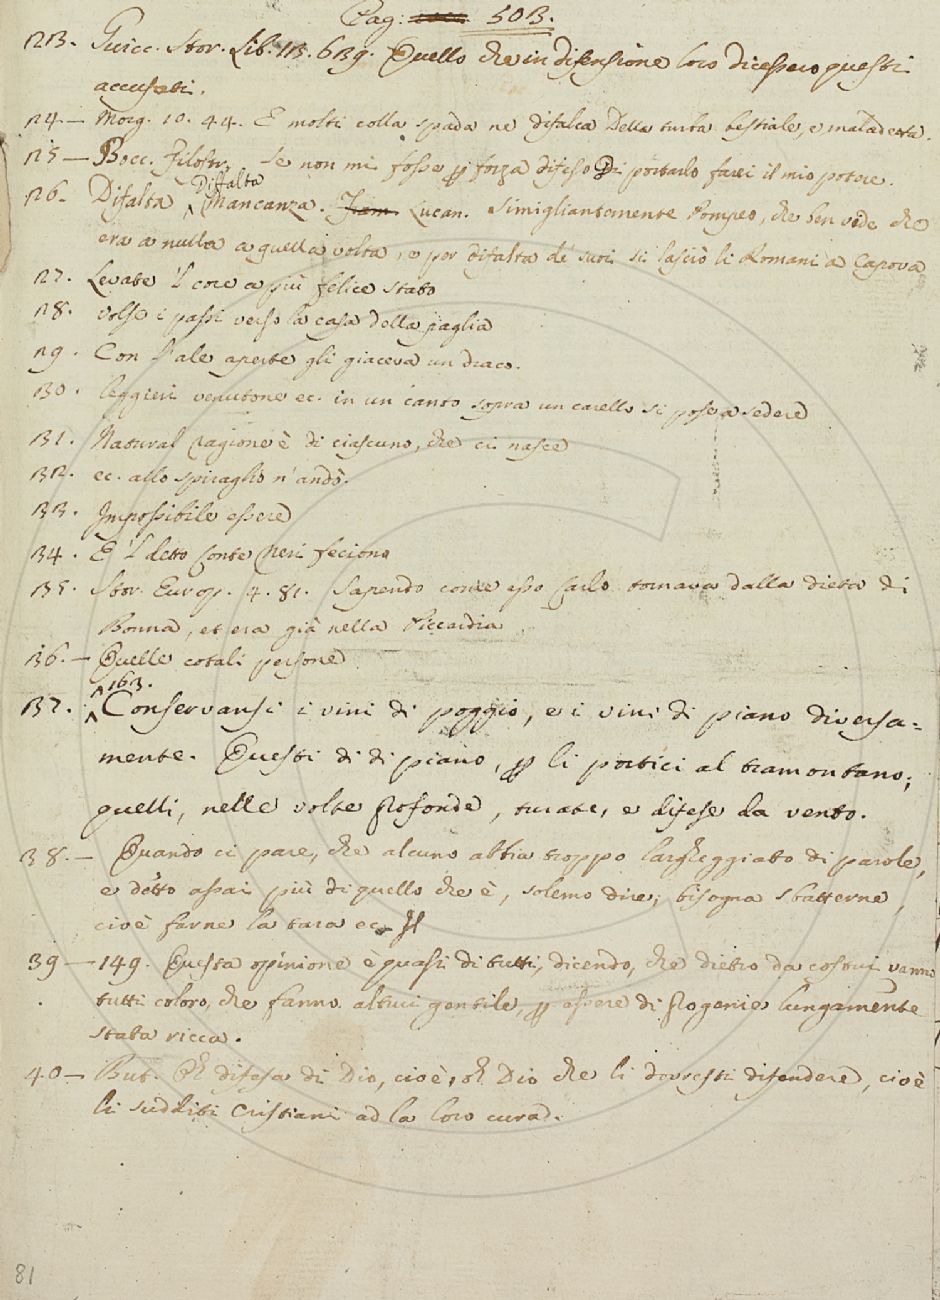 Pag: 503.
123. Guicc. Stor. Lib. 13. 639. Quello che in difensione loro dicessero questi
accusati.
124 — Morg. 10. 44. E molti colla spada ne difalca Della turba bestiale, e maladetta.
125 — Bocc. Filostr. Se non mi fosse p forza difeso Di portarlo farei il mio potere.
Diffalta
126 - Difalta Mancanza. Lucan. Simigliantemente Pompeo, che ben vide che
era a nulla a quella volta, e per difalta de' suoi si lasciò li Romani a Capova
127. Levate 'l core a più felice stato
128. volse i passi verso la casa della paglia
29. Con l'ale aperte gli giaceva un draco.
130. leggieri venutone ec. in un canto sopra un carello si pose a sedere
131. Natural ragione è di ciascuno, che ci nasce
132. ec. allo spiraglio n'andò.
133. Impossibile essere
34. E 'l detto Conte Neri feciono
135. Stor. Europ. 4. 81. Sapendo come esso Carlo tornava dalla dieta di
Bonna, et era già nella Piccardia
136. — Quelle cotali persone
163.
137. Conservansi i vini di poggio, e i vini di piano diversa=
mente. Questi di di piano, p li portici al tramontano;
quelli, nelle volte profonde, turate, e difese da vento.
38. — Quando ci pare, che alcuno abbia troppo largheggiato di parole,
e detto assai più di quello che è, solemo dire; bisogna sbatterne,
cioè farne la tara ec.
39 — 149. Questa opinione è quasi di tutti, dicendo, che dietro da costoro vanno
tutti coloro, che fanno altrui gentile, p essere di progenie lungamente
stata ricca.
40 — But. O difesa di Dio, cioè, o Dio che li dovresti difendere, cioè
li sudditi Cristiani ad la loro cura.
81